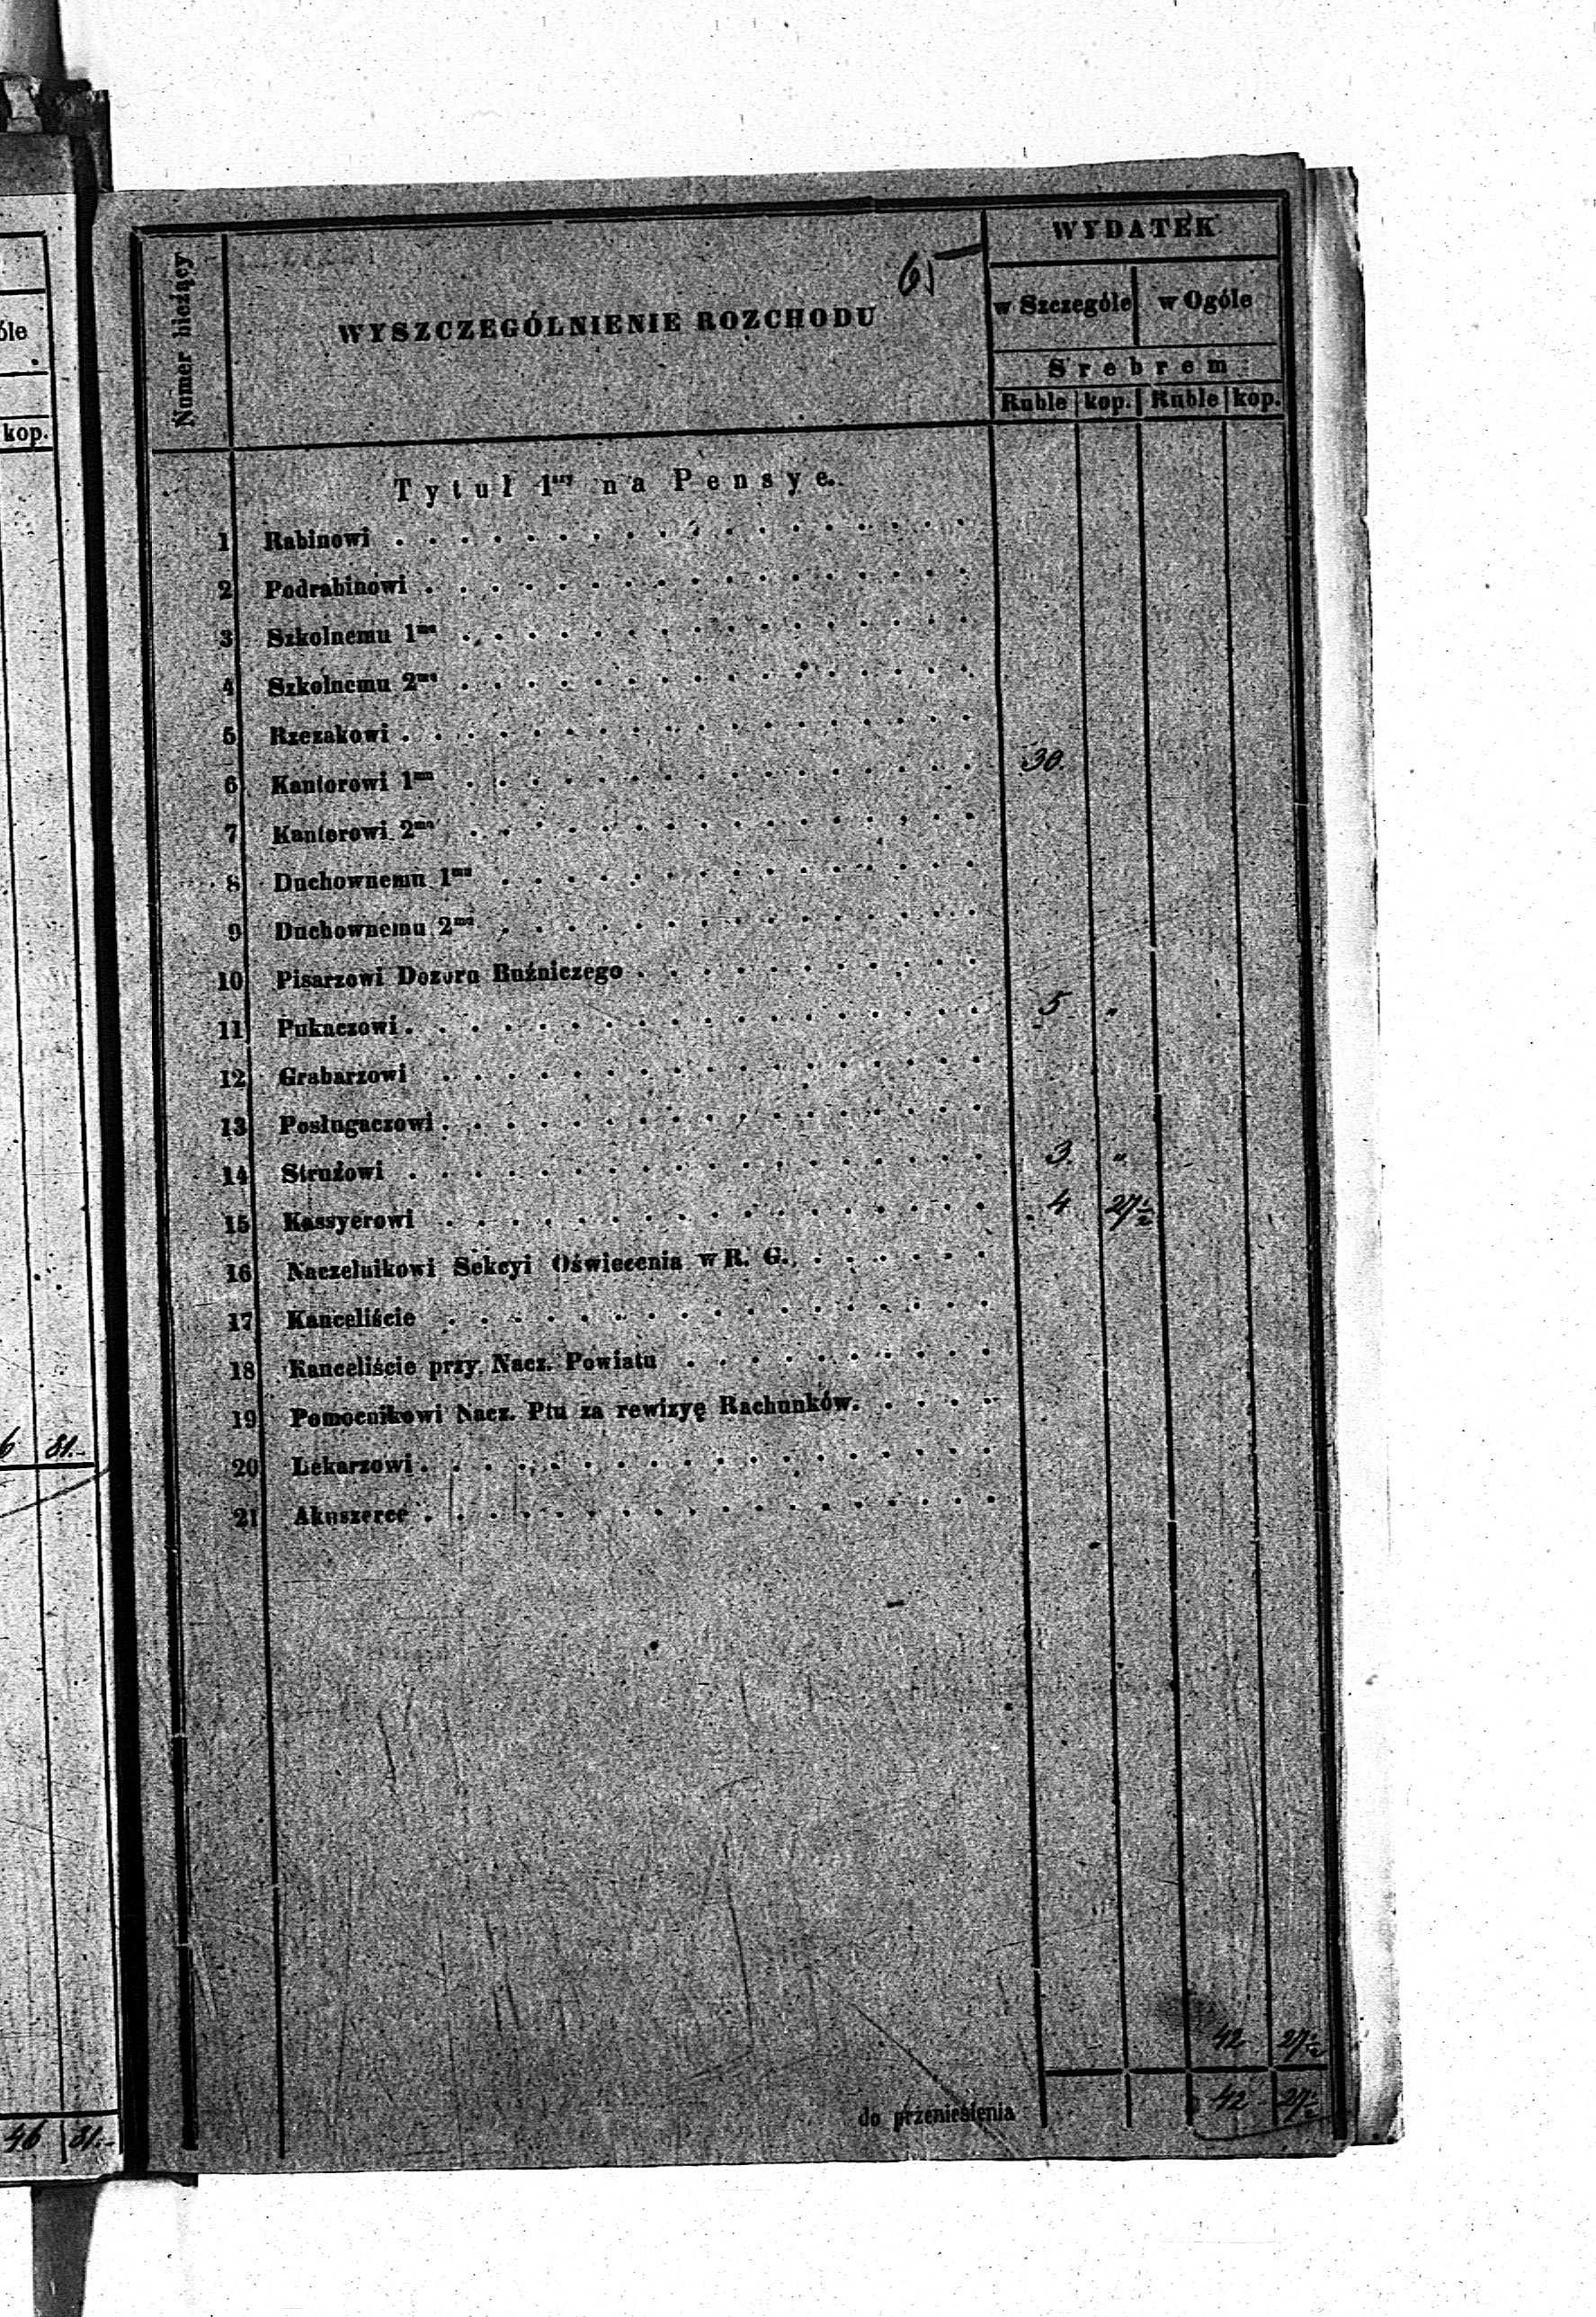 óle
kop.
6 81.-
46 81.-
65
Numer bieżący
WYSZCZEGÓLNIENIE ROZCHODU
WYDATEK
w Szczególe w Ogóle
Srebrem
Ruble kop. Ruble kop.
Tytuł 1ny na Pensye.
1 Rabinowi
2 Podrabinowi
3 Szkolnemu 1mu
4 Szkolnemu 2mu
5 Rzezakowi
6 Kantorowi 1mu 30.
7 Kantorowi 2mu
8 Duchownemu 1mu
9 Duchownemu 2mu
10 Pisarzowi Dozoru Bużniczego
11 Pukaczowi 5 "
12 Grabarzowi
13 Posługaczowi
14 Strużowi 3. "
15 Kassyerowi 4 27½
16 Naczelnikowi Sekcyi Oświecenia w R. G.
17 Kanceliście
18 Kanceliście przy Nacz. Powiatu
19 Pomocnikowi Nacz. Ptu za rewizyę Rachunków.
20 Lekarzowi
21 Akuszerce
42 27½
do przeniesienia 42 27½